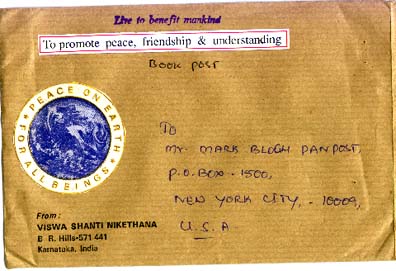 Live to benefit mankind
To promote peace, friendship & understanding
BOOK POST
PEACE ON EARTH
FOR ALL BEINGS
TO
MR. MARK BLOCH PANPOST,
P.O. BOX - 1500,
NEW YORK CITY, - 10009,
U.S.A
From:
VISWA SHANTI NIKETHANA
B R. Hills-571 441
Karnataka, India